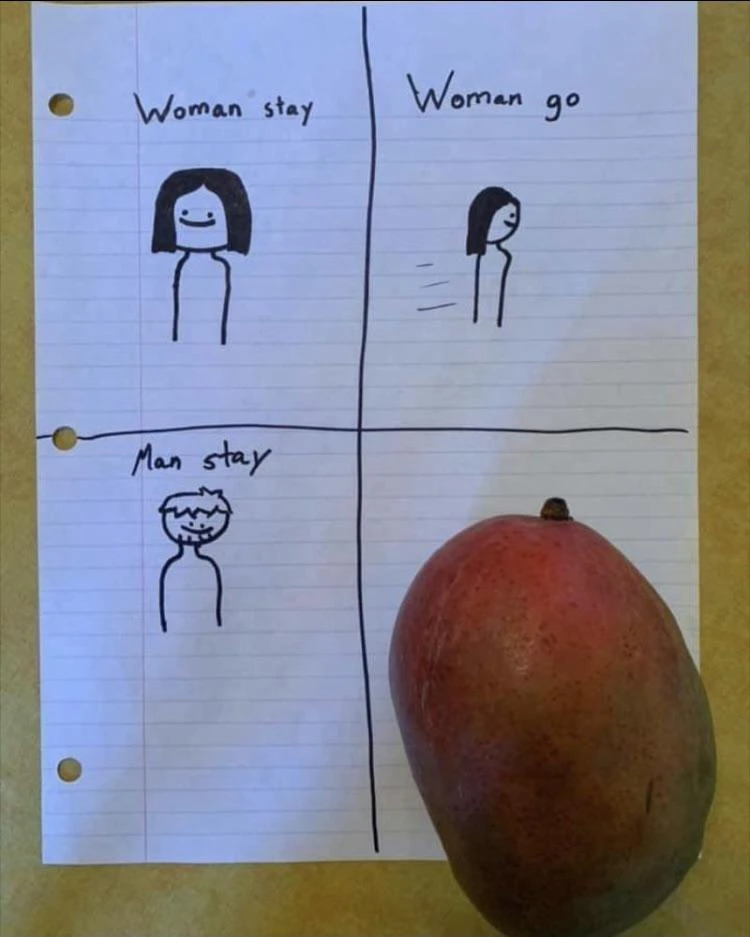 Woman stay
Woman go
Man stay